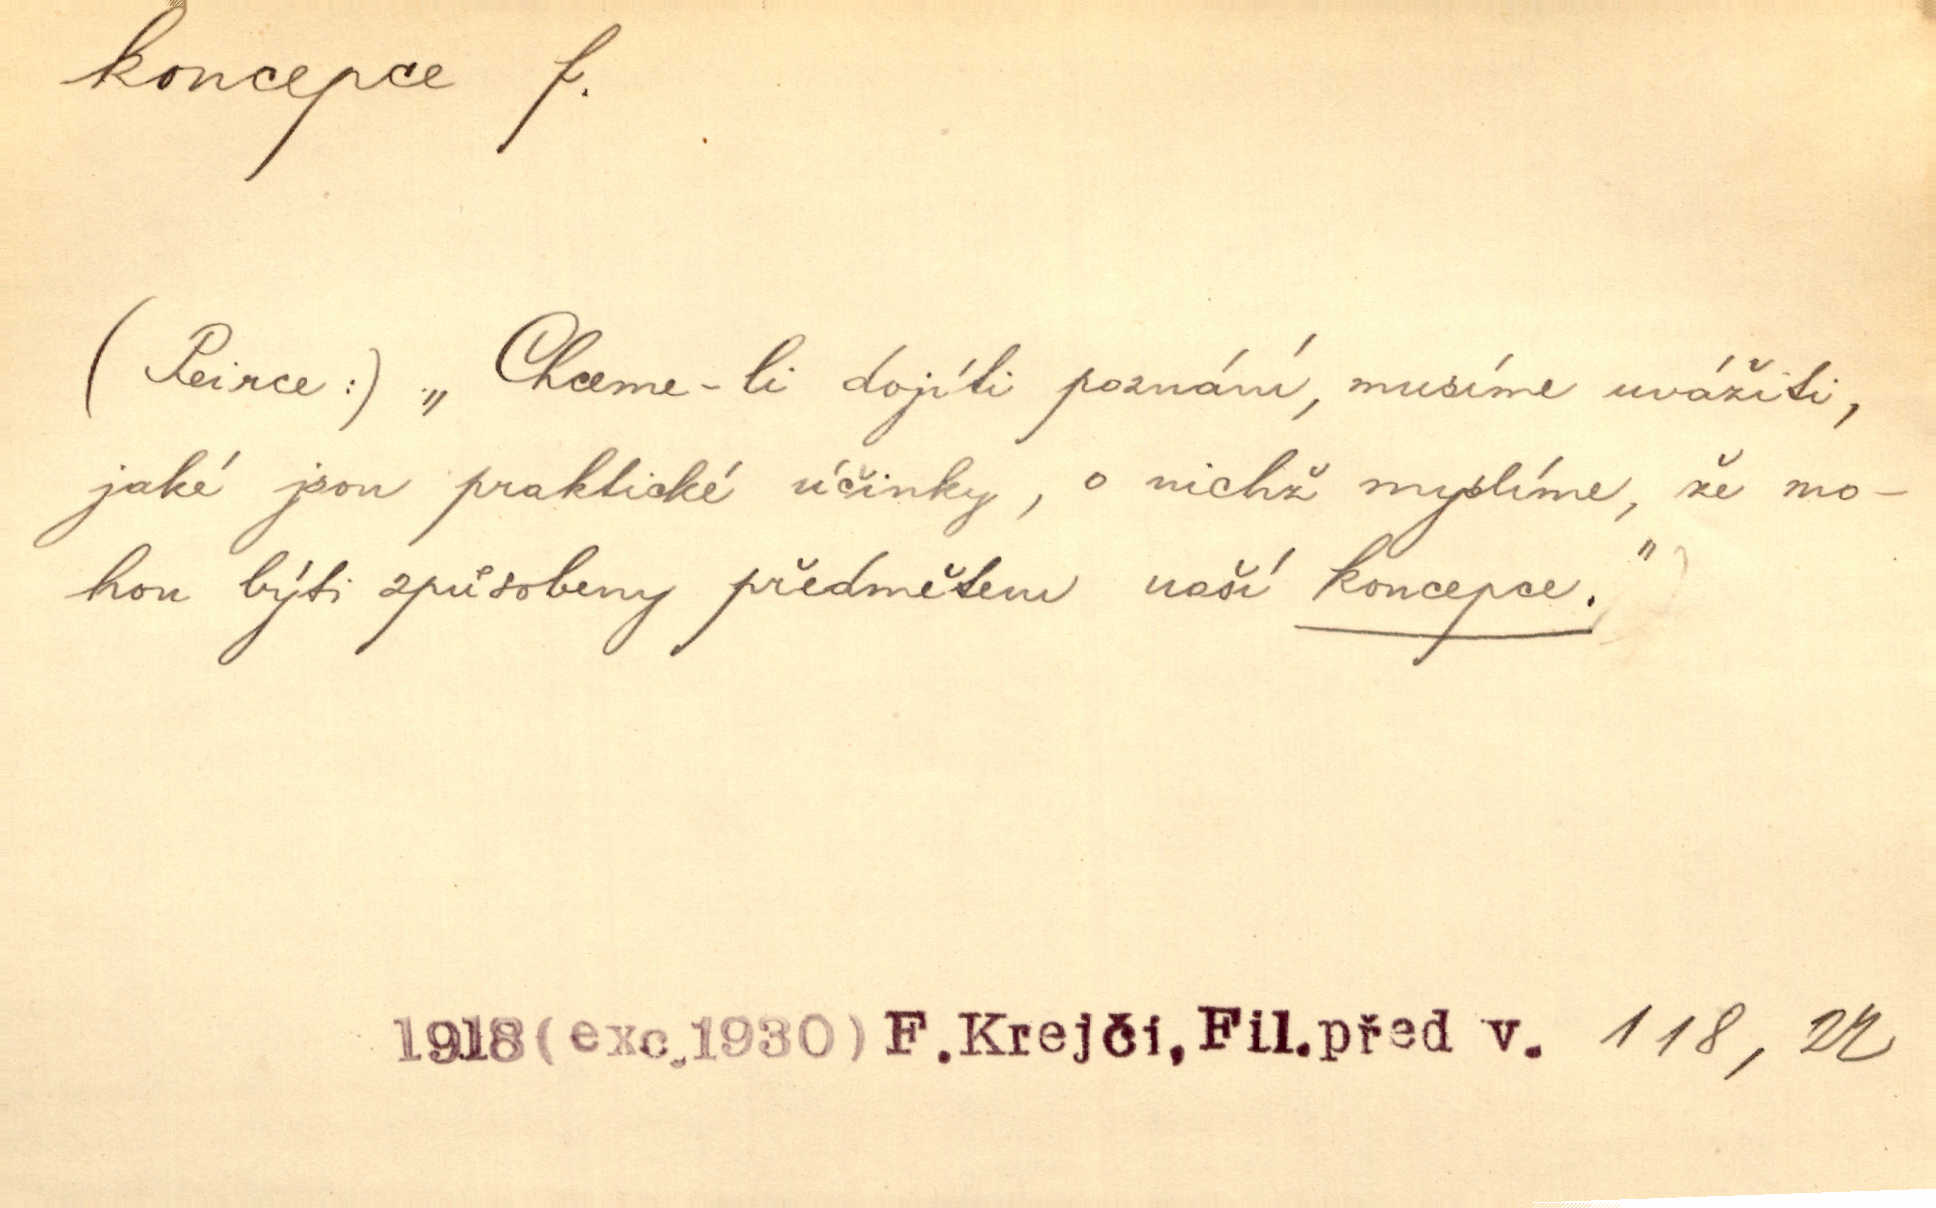 koncepce f.
(Peirce:) „Chceme-li dojíti poznání, musíme uvážiti,
jaké jsou praktické účinky, o nichž myslíme, že mo-
hou býti způsobeny předmětem naší koncepce."
1918 (exc. 1930) F. Krejčí, Fil. před v. 118,